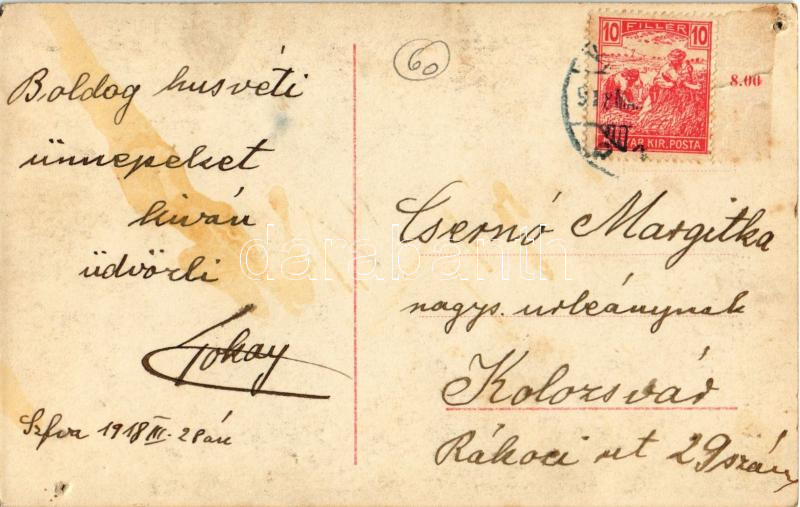 Boldog husvéti
ünnepeket
kiván
üdvözli
Tokay
Szfva 1918 III. 28 án
60
10 FILLÉR 10
MAGYAR KIR. POSTA
8.00
Csernó Margitka
nagys. urleánynak
Kolozsvár
Rákoci ut 29 szám
darabanth